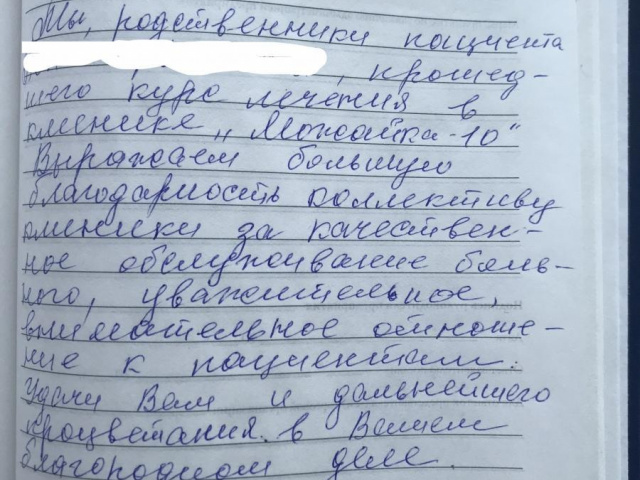 Мы, родственники пациента
, прошед-
шего курс лечения в
клинике „Можайка-10"
Выражаем большую
благодарность коллективу
клиники за качествен-
ное обслуживание боль-
ного, уважительное,
внимательное отноше-
ние к пациентам.
Удачи Вам и дальнейшего
процветания в Вашем
благородном деле.